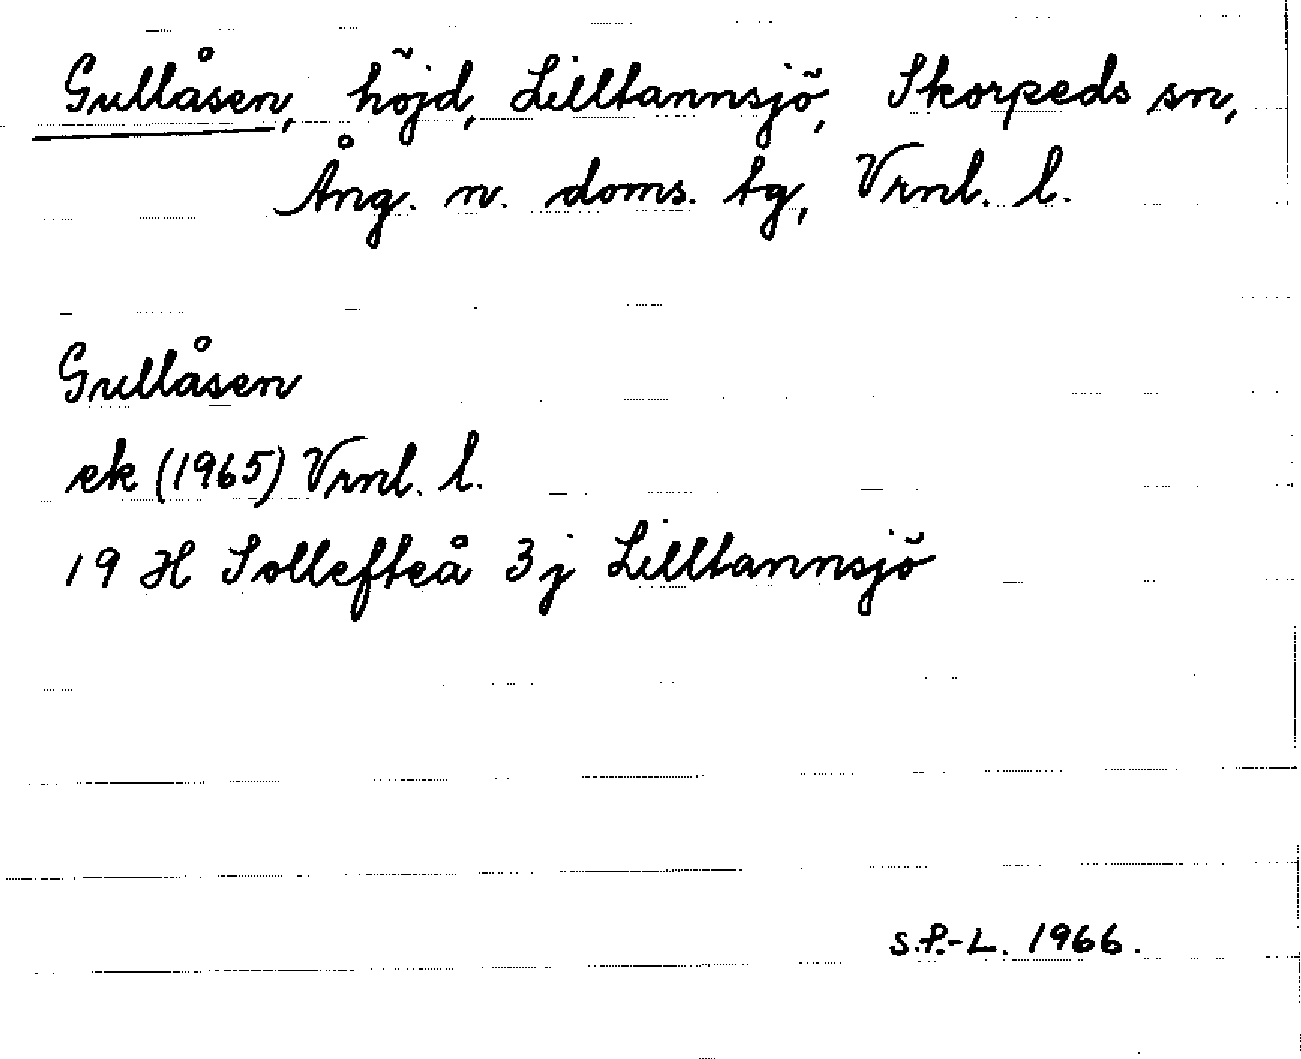 Gullåsen, höjd, Lilltannsjö, Skorpeds sn,
Ång. n. doms. tg, Vrnl. l.
Gullåsen
ek (1965) Vrnl. l.
19 H Sollefteå 3j Lilltannsjö
S.P.-L. 1966.